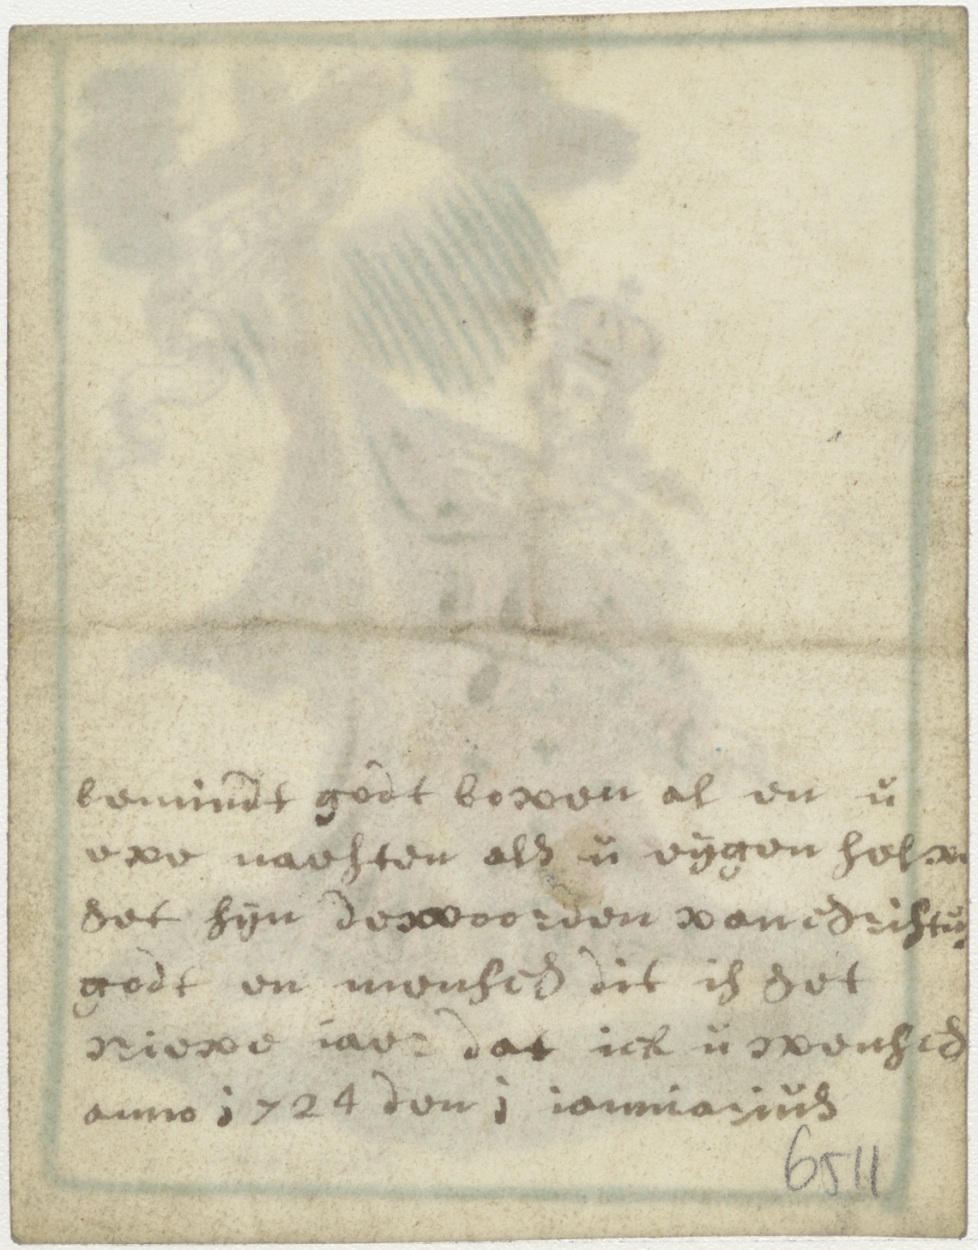 bemindt godt boven al en u
eve naesten als u eygen selve
het syn dewoorden van christus
godt en mensch dit is het
nieve iaer dat ick u wensch
anno j724 den j iannuarjus
6511